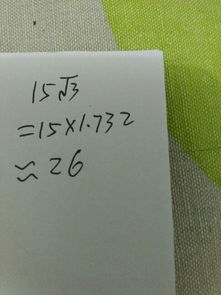 15√3
=15×1.732
≈26